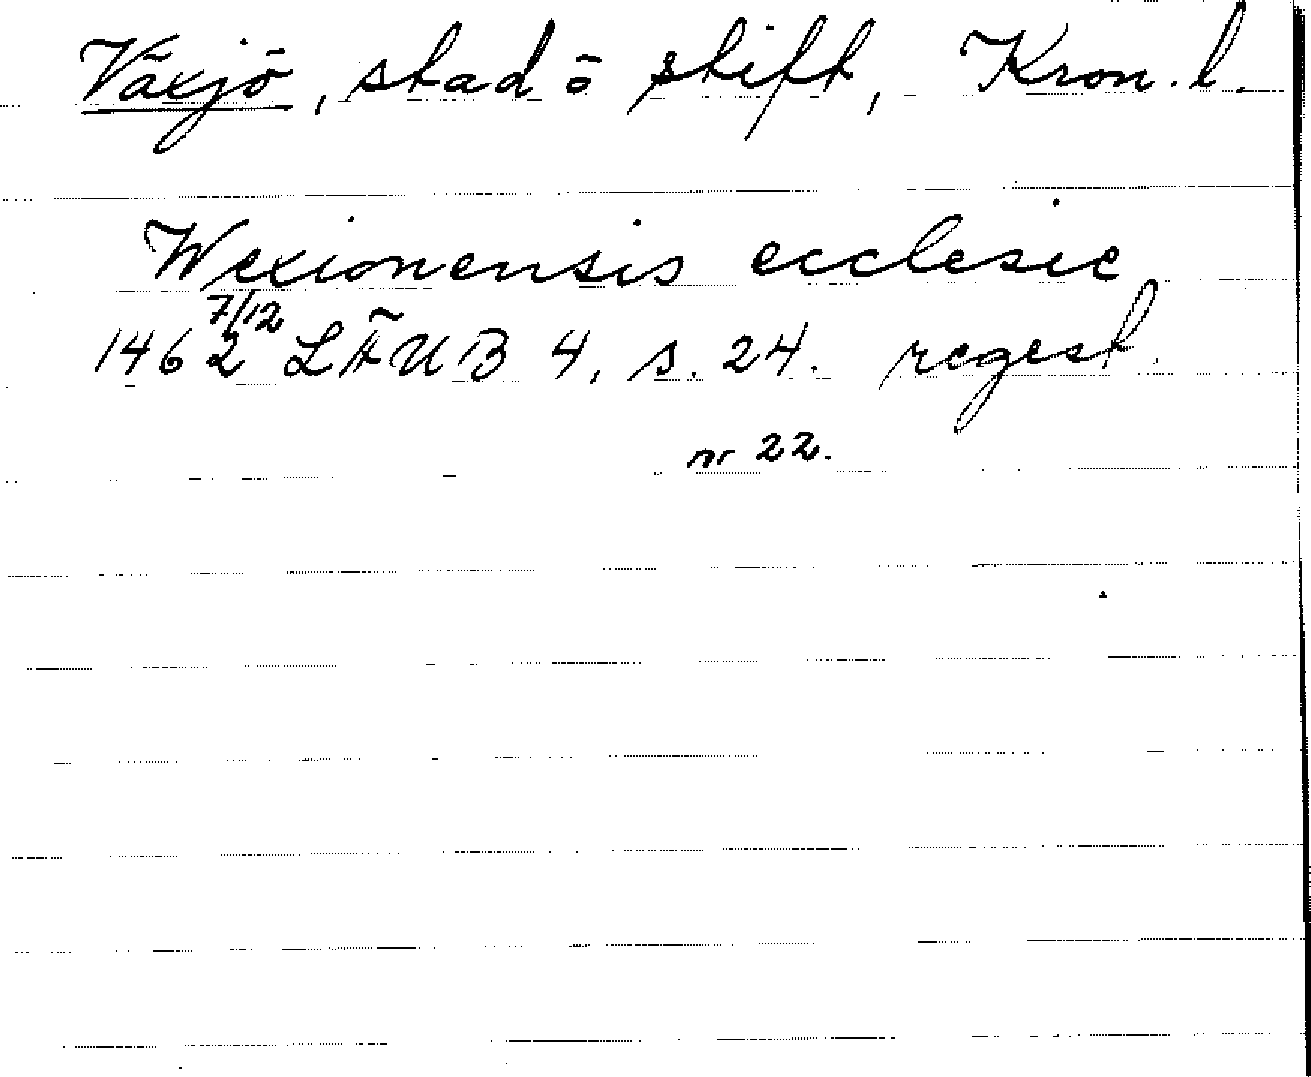 Växjö, stad o stift, Kron. l.
Wexionensis ecclesie
1462 7/12 LÄUB 4, s. 24. regest.
nr 22.